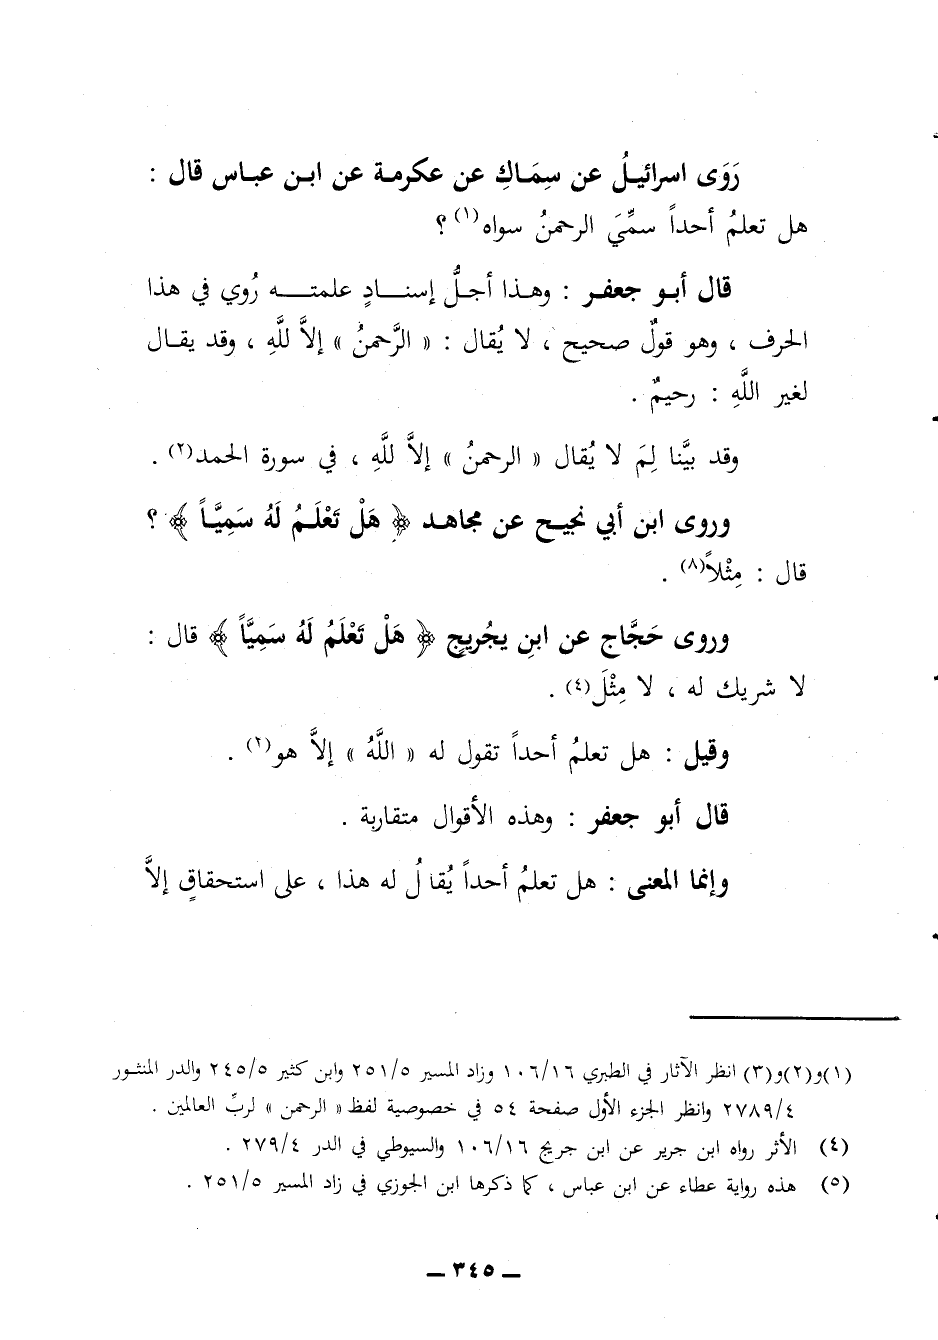 رَوَى اسرائيلُ عن سِمَاكِ عن عكرمة عن ابن عباس قال :
هل تعلمُ أحداً سمِّيَ الرحمنُ سواه(١) ؟
قال أبو جعفر : وهذا أجلُّ إسنادٍ علمته رُوي في هذا
الحرف ، وهو قولٌ صحيح ، لا يُقال : « الرَّحمنُ » إلاَّ للَّهِ ، وقد يقال
لغير اللَّهِ : رحيمٌ .
وقد بيَّنا لِمَ لا يُقال « الرحمنُ » إلاَّ للَّهِ ، في سورة الحمد(٢) .
وروى ابن أبي نجيح عن مجاهد ﴿ هَلْ تَعْلَمُ لَهُ سَمِيَّاً ﴾ ؟
قال : مِثْلاً(٨) .
وروى حَجَّاج عن ابنِ يجُريجٍ ﴿ هَلْ تَعْلَمُ لَهُ سَمِيَّاً ﴾ قال :
لا شريك له ، لا مِثْلَ(٤) .
وقيل : هل تعلمُ أحداً تقول له « اللَّهُ » إلاَّ هو(٢) .
قال أبو جعفر : وهذه الأقوال متقاربة .
وإنما المعنى : هل تعلمُ أحداً يُقالُ له هذا ، على استحقاقٍ إلاَّ
(١)و(٢)و(٣) انظر الآثار في الطبري ١٠٦/١٦ وزاد المسير ٢٥١/٥ وابن كثير ٢٤٥/٥ والدر المنثور
٢٧٨٩/٤ وانظر الجزء الأول صفحة ٥٤ في خصوصية لفظ « الرحمن » لربِّ العالمين .
(٤) الأثر رواه ابن جرير عن ابن جريج ١٠٦/١٦ والسيوطي في الدر ٢٧٩/٤ .
(٥) هذه رواية عطاء عن ابن عباس ، كما ذكرها ابن الجوزي في زاد المسير ٢٥١/٥ .
ــ ٣٤٥ ــ